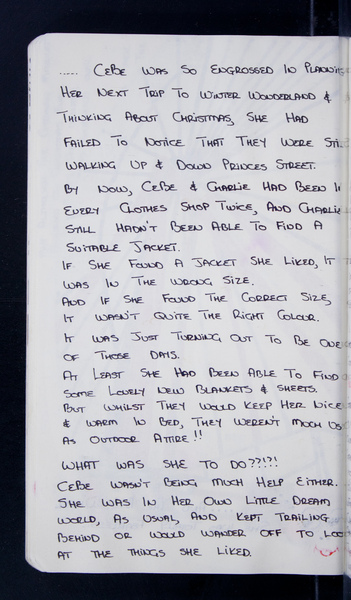 ..... CEBE WAS SO ENGROSSED IN PLANNING
HER NEXT TRIP TO WINTER WONDERLAND &
THINKING ABOUT CHRISTMAS, SHE HAD
FAILED TO NOTICE THAT THEY WERE STILL
WALKING UP & DOWN PRINCES STREET.
BY NOW, CEBE & CHARLIE HAD BEEN IN
EVERY CLOTHES SHOP TWICE, AND CHARLIE
STILL HADN'T BEEN ABLE TO FIND A
SUITABLE JACKET.
IF SHE FOUND A JACKET SHE LIKED, IT
WAS IN THE WRONG SIZE.
AND IF SHE FOUND THE CORRECT SIZE,
IT WASN'T QUITE THE RIGHT COLOUR.
IT WAS JUST TURNING OUT TO BE ONE
OF THOSE DAYS.
AT LEAST SHE HAD BEEN ABLE TO FIND
SOME LOVELY NEW BLANKETS & SHEETS.
BUT WHILST THEY WOULD KEEP HER NICE
& WARM IN BED, THEY WEREN'T MUCH
AS OUTDOOR ATTIRE!!
WHAT WAS SHE TO DO??!?!
CEBE WASN'T BEING MUCH HELP EITHER.
SHE WAS IN HER OWN LITTLE DREAM
WORLD, AS USUAL, AND KEPT TRAILING
BEHIND OR WOULD WANDER OFF TO LOOK
AT THE THINGS SHE LIKED.